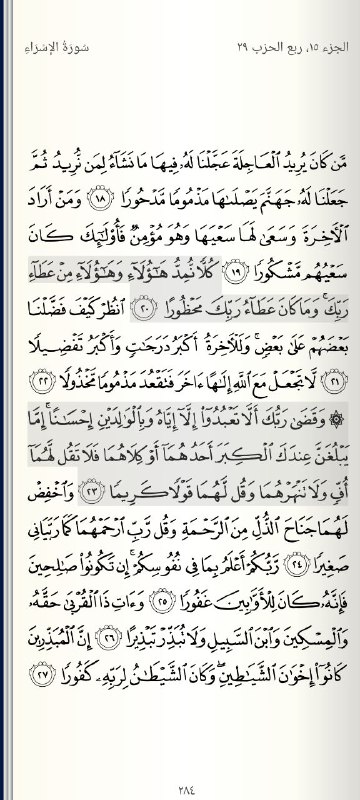 الجزء ١٥، ربع الحزب ٢٩ سُورَةُ الإِسۡرَاءِ
مَّن كَانَ يُرِيدُ ٱلۡعَاجِلَةَ عَجَّلۡنَا لَهُۥ فِيهَا مَا نَشَآءُ لِمَن نُّرِيدُ ثُمَّ
جَعَلۡنَا لَهُۥ جَهَنَّمَ يَصۡلَىٰهَا مَذۡمُومٗا مَّدۡحُورٗا ١٨ وَمَنۡ أَرَادَ
ٱلۡأٓخِرَةَ وَسَعَىٰ لَهَا سَعۡيَهَا وَهُوَ مُؤۡمِنٞ فَأُوْلَٰٓئِكَ كَانَ
سَعۡيُهُم مَّشۡكُورٗا ١٩ كُلّٗا نُّمِدُّ هَٰٓؤُلَآءِ وَهَٰٓؤُلَآءِ مِنۡ عَطَآءِ
رَبِّكَۚ وَمَا كَانَ عَطَآءُ رَبِّكَ مَحۡظُورًا ٢٠ ٱنظُرۡ كَيۡفَ فَضَّلۡنَا
بَعۡضَهُمۡ عَلَىٰ بَعۡضٖۚ وَلَلۡأٓخِرَةُ أَكۡبَرُ دَرَجَٰتٖ وَأَكۡبَرُ تَفۡضِيلٗا
٢١ لَّا تَجۡعَلۡ مَعَ ٱللَّهِ إِلَٰهًا ءَاخَرَ فَتَقۡعُدَ مَذۡمُومٗا مَّخۡذُولٗا ٢٢
۞ وَقَضَىٰ رَبُّكَ أَلَّا تَعۡبُدُوٓاْ إِلَّآ إِيَّاهُ وَبِٱلۡوَٰلِدَيۡنِ إِحۡسَٰنًاۚ إِمَّا
يَبۡلُغَنَّ عِندَكَ ٱلۡكِبَرَ أَحَدُهُمَآ أَوۡ كِلَاهُمَا فَلَا تَقُل لَّهُمَآ
أُفّٖ وَلَا تَنۡهَرۡهُمَا وَقُل لَّهُمَا قَوۡلٗا كَرِيمٗا ٢٣ وَٱخۡفِضۡ
لَهُمَا جَنَاحَ ٱلذُّلِّ مِنَ ٱلرَّحۡمَةِ وَقُل رَّبِّ ٱرۡحَمۡهُمَا كَمَا رَبَّيَانِي
صَغِيرٗا ٢٤ رَّبُّكُمۡ أَعۡلَمُ بِمَا فِي نُفُوسِكُمۡۚ إِن تَكُونُواْ صَٰلِحِينَ
فَإِنَّهُۥ كَانَ لِلۡأَوَّٰبِينَ غَفُورٗا ٢٥ وَءَاتِ ذَا ٱلۡقُرۡبَىٰ حَقَّهُۥ
وَٱلۡمِسۡكِينَ وَٱبۡنَ ٱلسَّبِيلِ وَلَا تُبَذِّرۡ تَبۡذِيرًا ٢٦ إِنَّ ٱلۡمُبَذِّرِينَ
كَانُوٓاْ إِخۡوَٰنَ ٱلشَّيَٰطِينِۖ وَكَانَ ٱلشَّيۡطَٰنُ لِرَبِّهِۦ كَفُورٗا ٢٧
٢٨٤